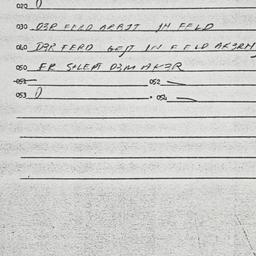 020 0
030 D3R FERD ARBIT IN FELD
040 D3R FERD GEPT IN FELD AK3RN
050 ER SALEPT D3M AK3R
051 052
053 0 . 054